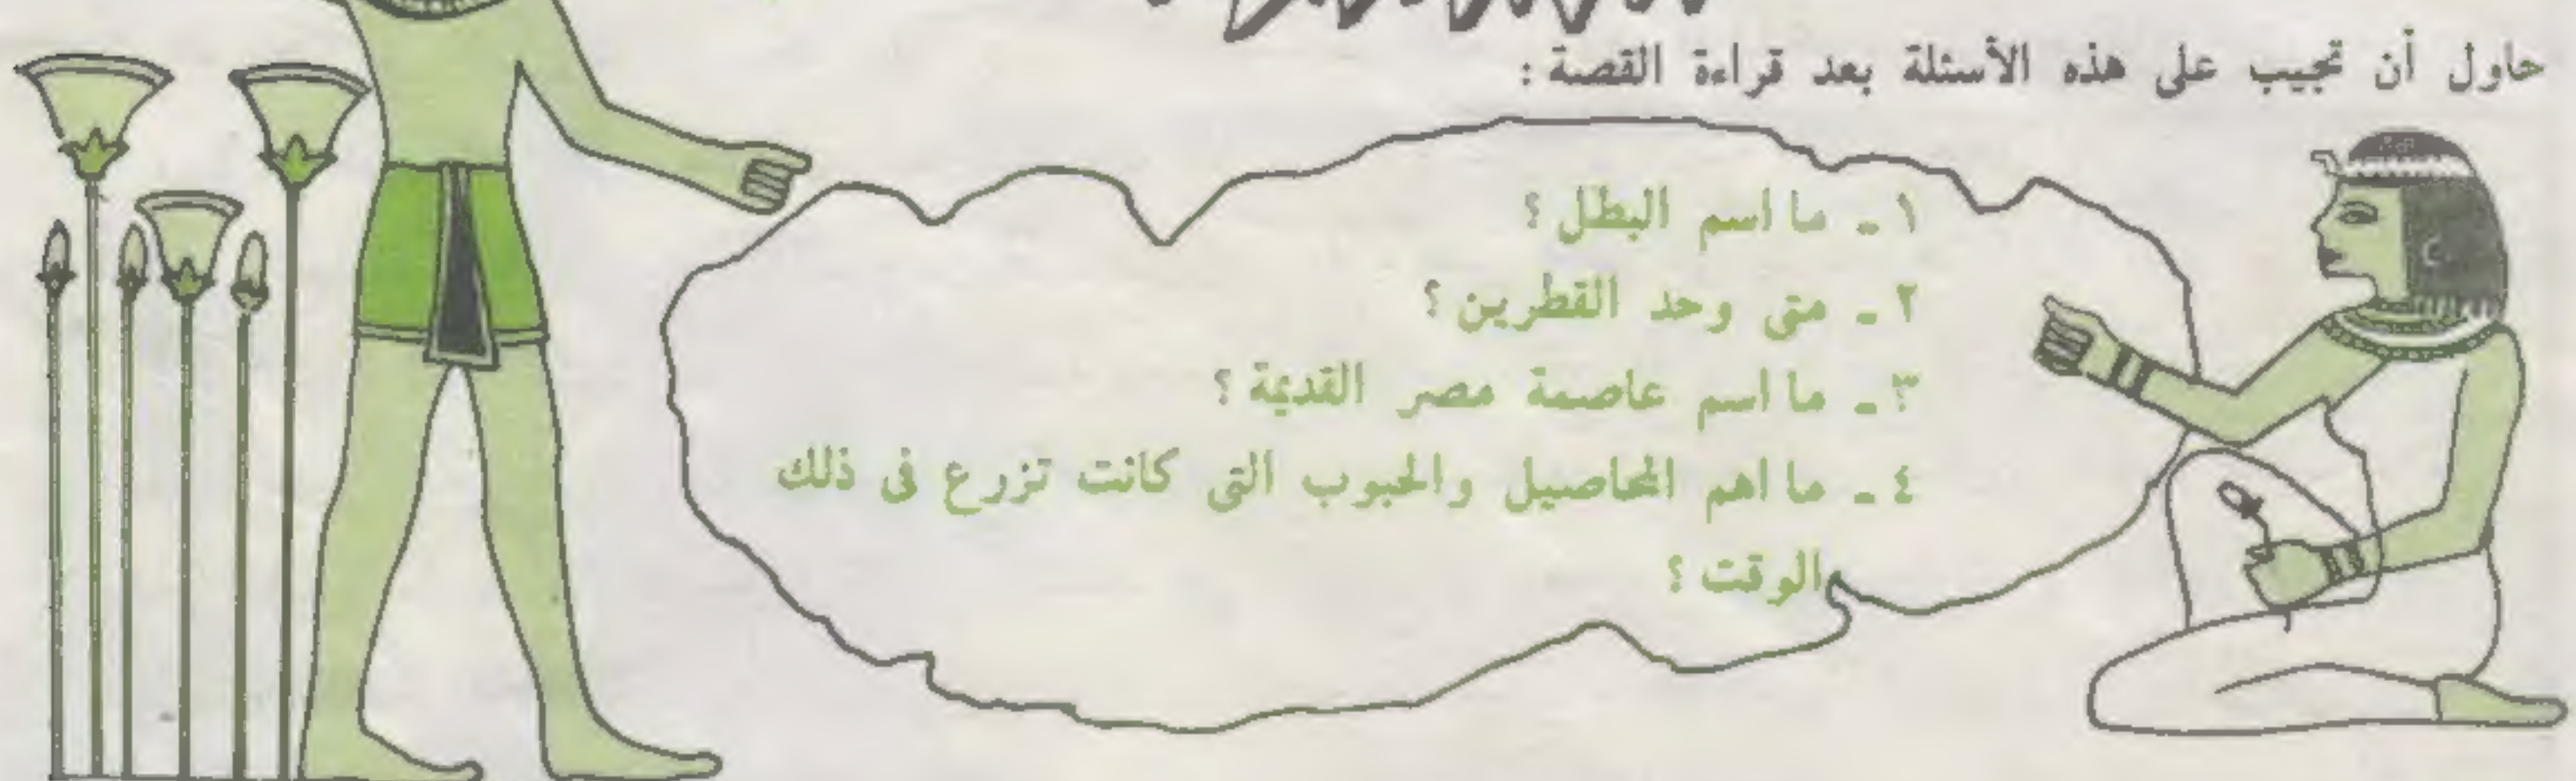 حاول أن تجيب على هذه الأسئلة بعد قراءة القصة :
١ ـ ما اسم البطل ؟
٢ ـ متى وحد القطرين ؟
٣ ـ ما اسم عاصمة مصر القديمة ؟
٤ ـ ما اهم المحاصيل والحبوب التى كانت تزرع فى ذلك
الوقت ؟